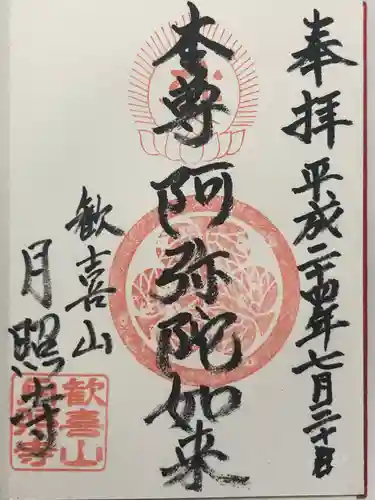 奉拝 平成二十四年七月二十日
本尊 阿弥陀如来
歓喜山
月照寺
歓喜山
月照寺